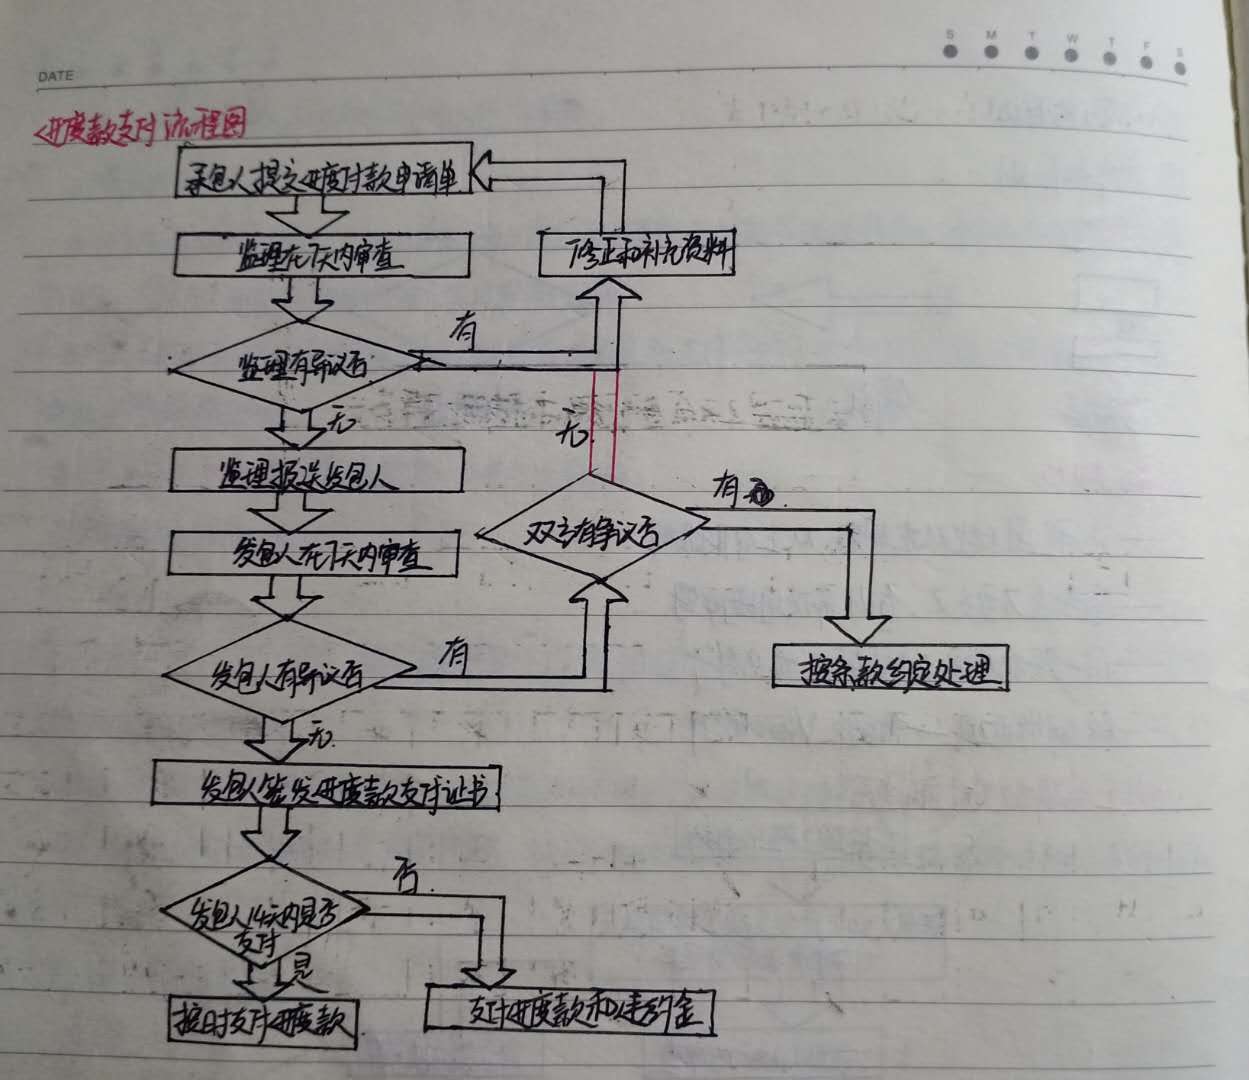 S M T W T F S
DATE
进度款支付流程图
承包人提交进度付款申请单
监理在7天内审查
修正和补充资料
有
监理有异议否
无
无
监理报送发包人
有
双方有争议否
发包人在7天内审查
有
发包人有异议否
按条款约定处理
无
发包人签发进度款支付证书
否
发包人14天内是否
支付
是
按时支付进度款
支付进度款和违约金